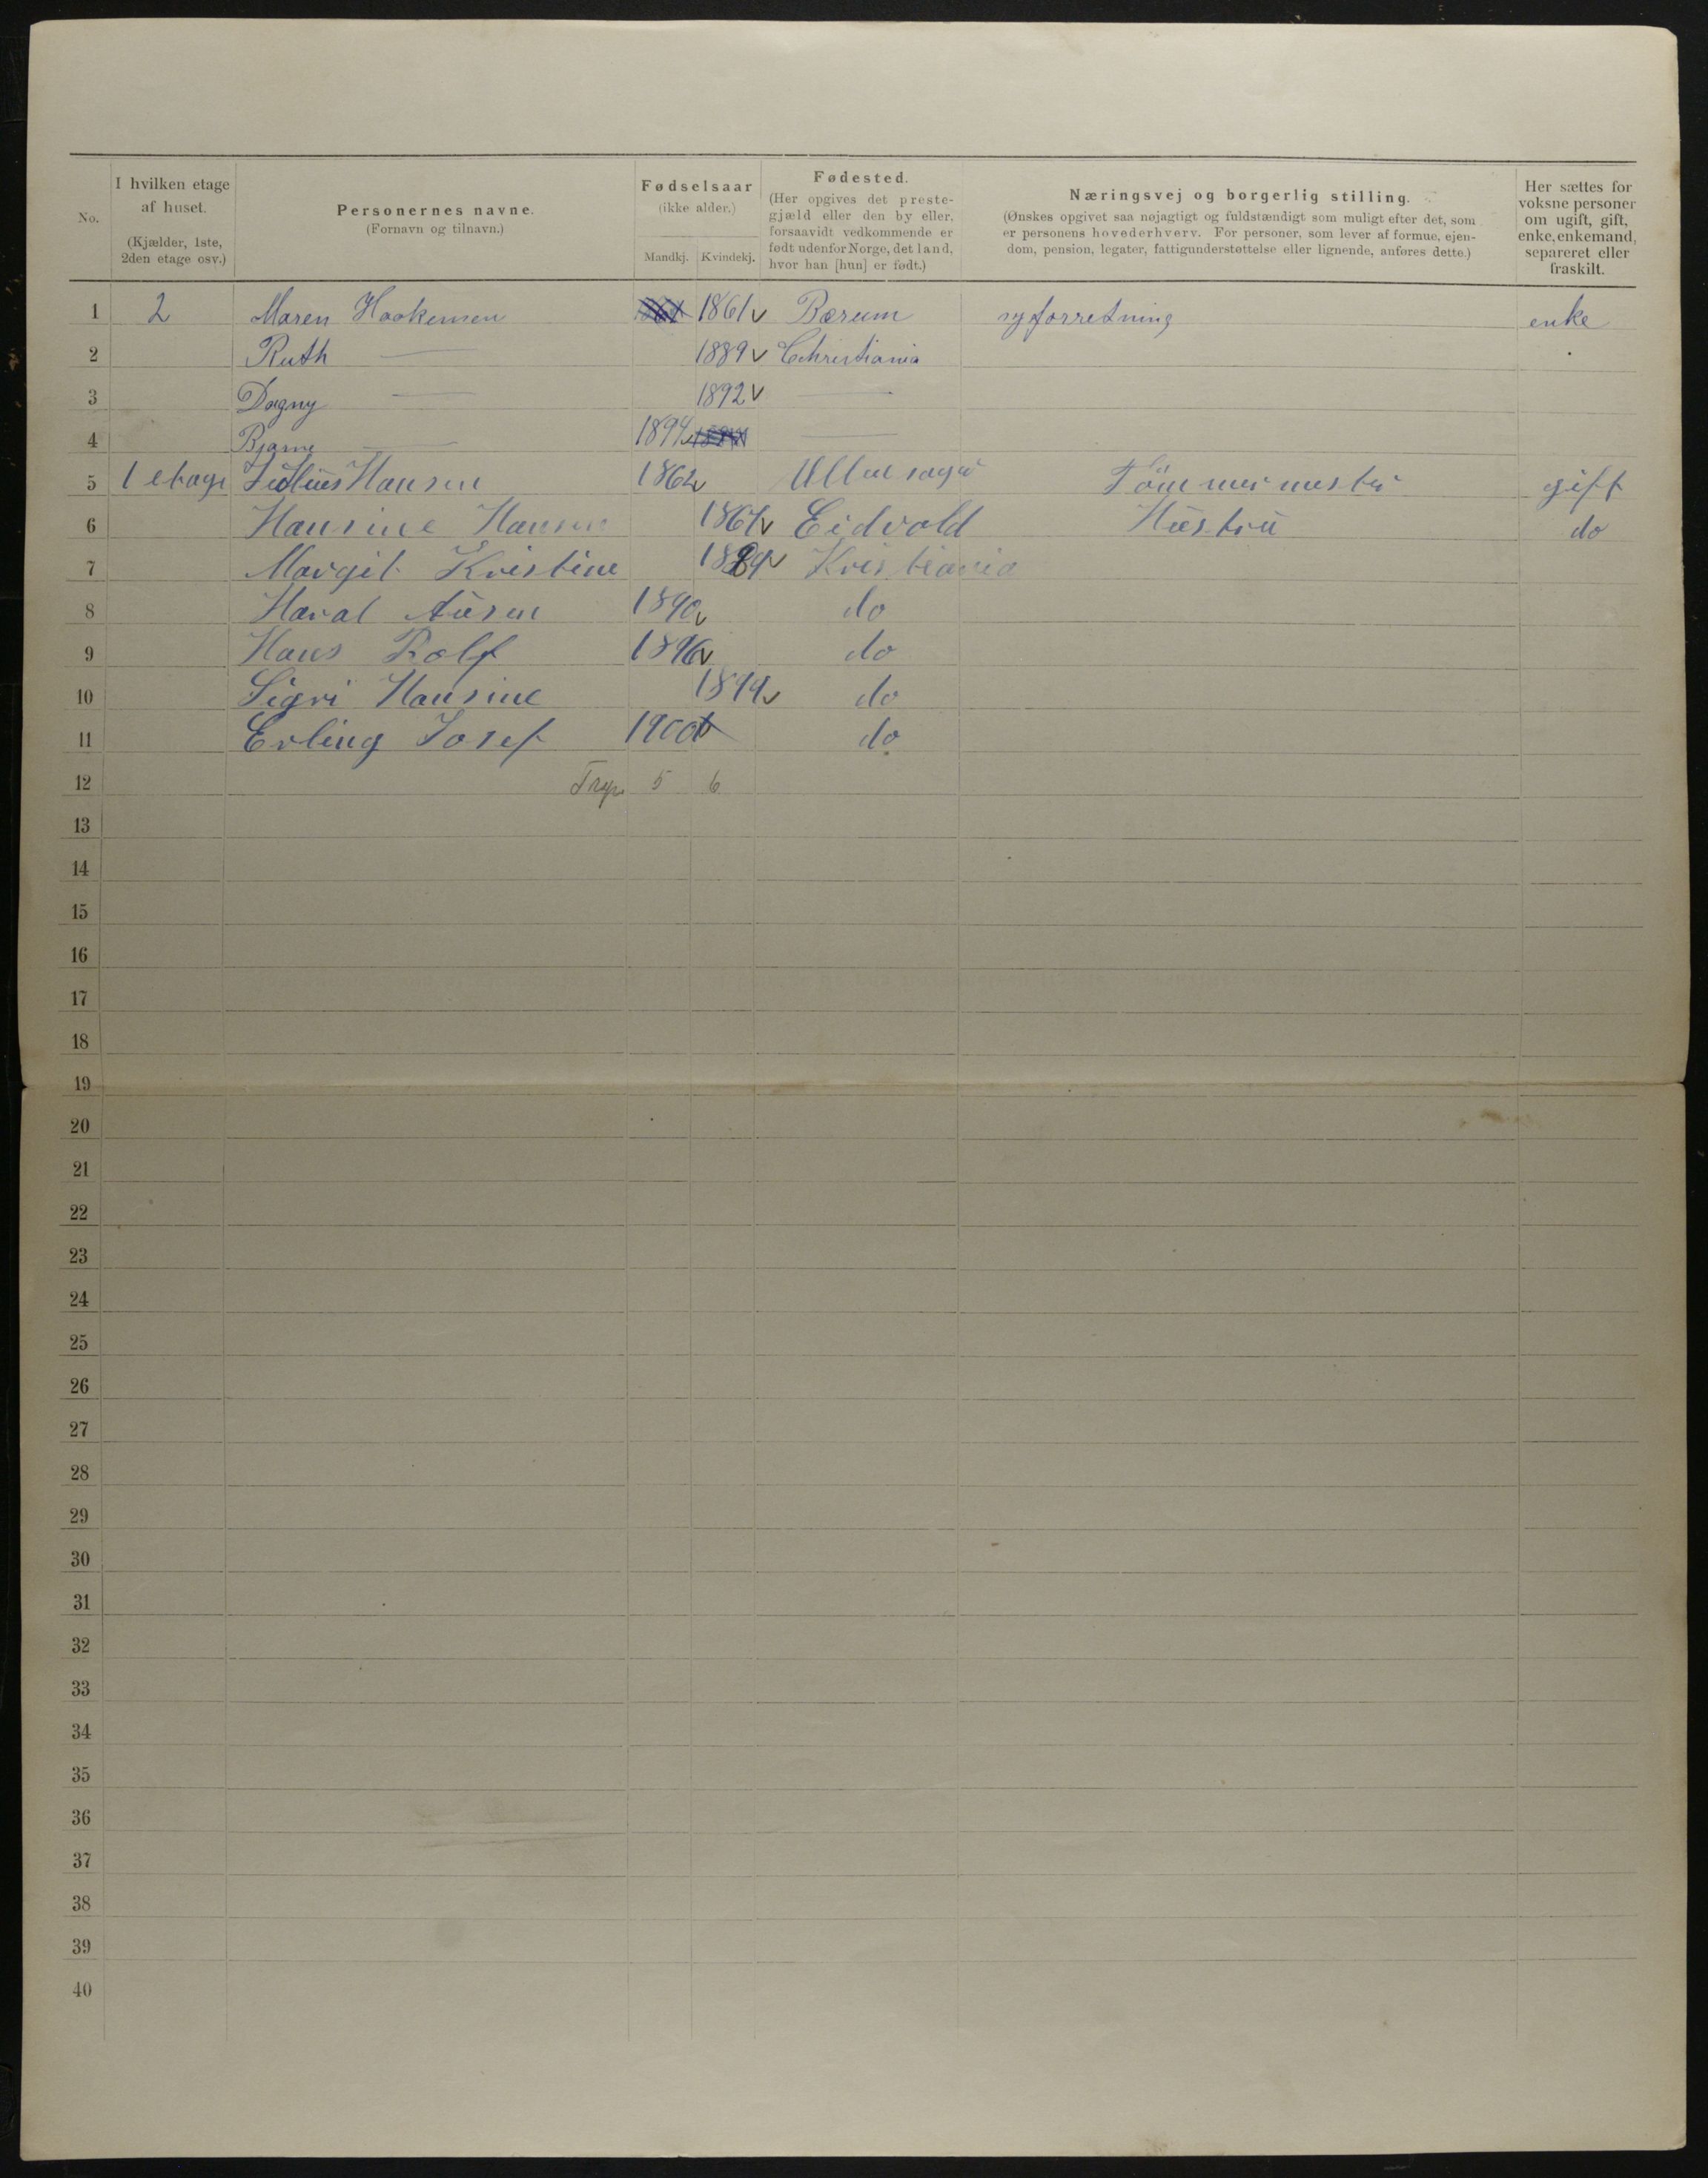 No.
I hvilken etage af huset.
(Kjælder, 1ste, 2den etage osv.)
Personernes navne.
(Fornavn og tilnavn.)
Fødselsaar
(ikke alder.)
Mandkj. Kvindekj.
Fødested.
(Her opgives det prestegjæld eller den by eller, forsaavidt vedkommende er født udenfor Norge, det land, hvor han [hun] er født.)
Næringsvej og borgerlig stilling.
(Ønskes opgivet saa nøjagtigt og fuldstændigt som muligt efter det, som er personens hovederhverv. For personer, som lever af formue, ejendom, pension, legater, fattigunderstøttelse eller lignende, anføres dette.)
Her sættes for voksne personer om ugift, gift, enke, enkemand, separeret eller fraskilt.
1 2 Maren Haakensen 1861 Bærum syforretning enke
2 Ruth — 1889 Christiania
3 Dagny — 1892 —
4 Bjarne — 1894 —
5 1 etage Julius Hansen 1862 Ullensager Tömmermester gift
6 Hansine Hansen 1861 Eidvold Hustru do
7 Margit Kristine 1889 Kristiania
8 Haral 1890 do
9 Hans Rolf 1896 do
10 Sigri Hansine 1899 do
11 Erling Josef 1900 do
12 5 6
13
14
15
16
17
18
19
20
21
22
23
24
25
26
27
28
29
30
31
32
33
34
35
36
37
38
39
40